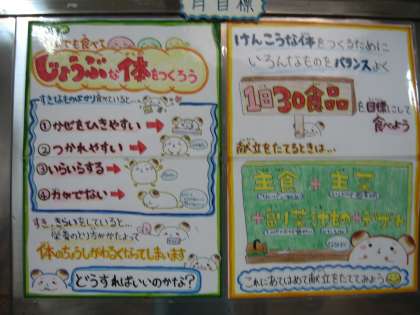 月目標
でも食べて
じょうぶな体をつくろう
すきなものばかり食べていると…
①かぜをひきやすい
②つかれやすい
③いらいらする
④力がでない
すき、きらいをしていると…
栄養のとり方がかたよって
体のちょうしがわるくなってしまいます
どうすればいいのかな?
けんこうな体をつくるために
いろんなものをバランスよく
1日30食品
を目標にして
食べよう
献立をたてるときは…
主食+主菜
+副菜
デザート
これにあてはめて献立をたててみよう